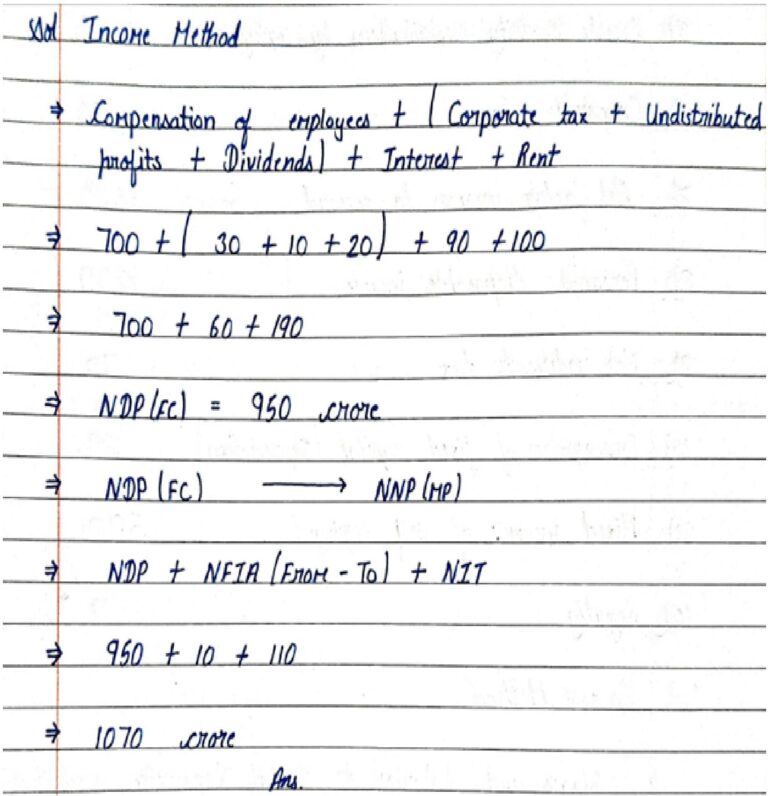 Sol Income Method
⇒ Compensation of employees + ( Corporate tax + Undistributed
profits + Dividends) + Interest + Rent
⇒ 700 + ( 30 + 10 + 20) + 90 + 100
⇒ 700 + 60 + 190
⇒ NDP (FC) = 950 crore
⇒ NDP (FC) ⟶ NNP (MP)
⇒ NDP + NFIA (From - To) + NIT
⇒ 950 + 10 + 110
⇒ 1070 crore
Ans.